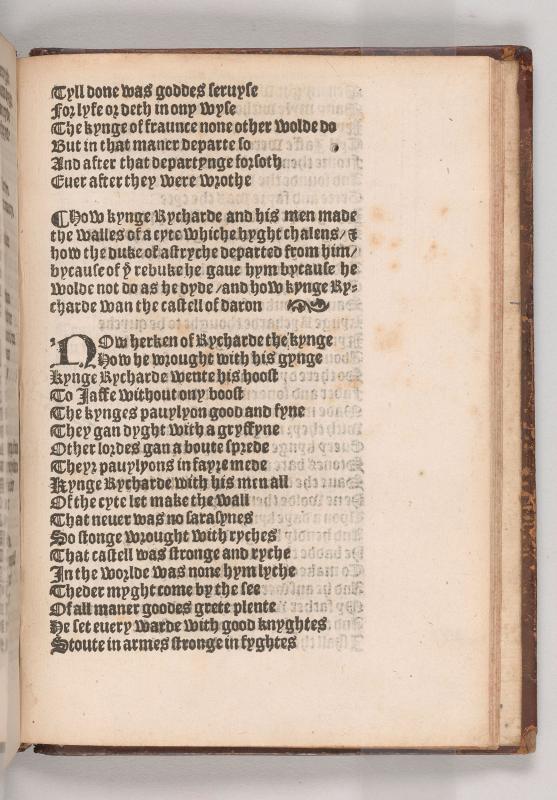 Tyll done was goddes seruyse
For lyfe or deth in ony wyse
The kynge of fraunce none other wolde do
But in that maner departe so
And after that departynge forsoth
Euer after they were wrothe
¶How kynge Rycharde and his men made
the walles of a cyte whiche hyght chalens/⁊
how the duke of astryche departed from him/
bycause of yͤ rebuke he gaue hym bycause he
wolde not do as he dyde/and how kynge Ry-
charde wan the castell of daron
NOw herken of Rycharde the kynge
How he wrought with his gynge
kynge Rycharde wente his hoost
To Jaffe without ony boost
The kynges pauylyon good and fyne
They gan dyght with a gryffyne
Other lordes gan a boute sprede
Theyr pauylyons in fayre mede
Kynge Rycharde with his men all
Of the cyte let make the wall
That neuer was no sarasynes
So stonge wrought with ryches
That castell was stronge and ryche
In the worlde was none hym lyche
Theder myght come by the see
Of all maner goodes grete plente
He set euery warde with good knyghtes
Stoute in armes stronge in fyghtes